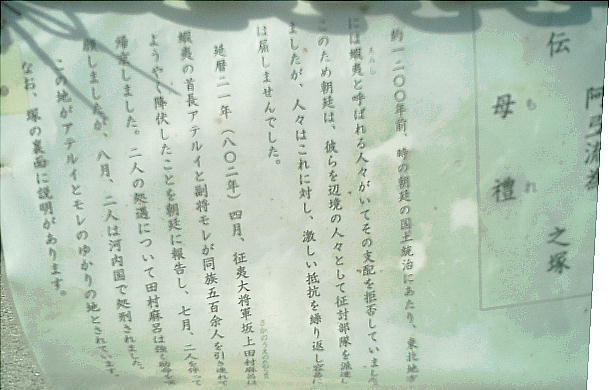 伝 阿弖流為
母禮 之塚
もれ
約一二〇〇年前、時の朝廷の国土統治にあたり、東北地方
には蝦夷と呼ばれる人々がいてその支配を拒否していました。
えみし
このため朝廷は、彼らを辺境の人々として征討部隊を派遣し
ましたが、人々はこれに対し、激しい抵抗を繰り返し容易に
は屈しませんでした。
延暦二一年（八〇二年）四月、征夷大将軍坂上田村麻呂は
さかのうえのたむらまろ
蝦夷の首長アテルイと副将モレが同族五百余人を引き連れて
ようやく降伏したことを朝廷に報告し、七月、二人を伴って
帰京しました。二人の処遇について田村麻呂は強く助命を
願しましたが、八月、二人は河内国で処刑されました。
この地がアテルイとモレのゆかりの地とされています。
なお、塚の裏面に説明があります。